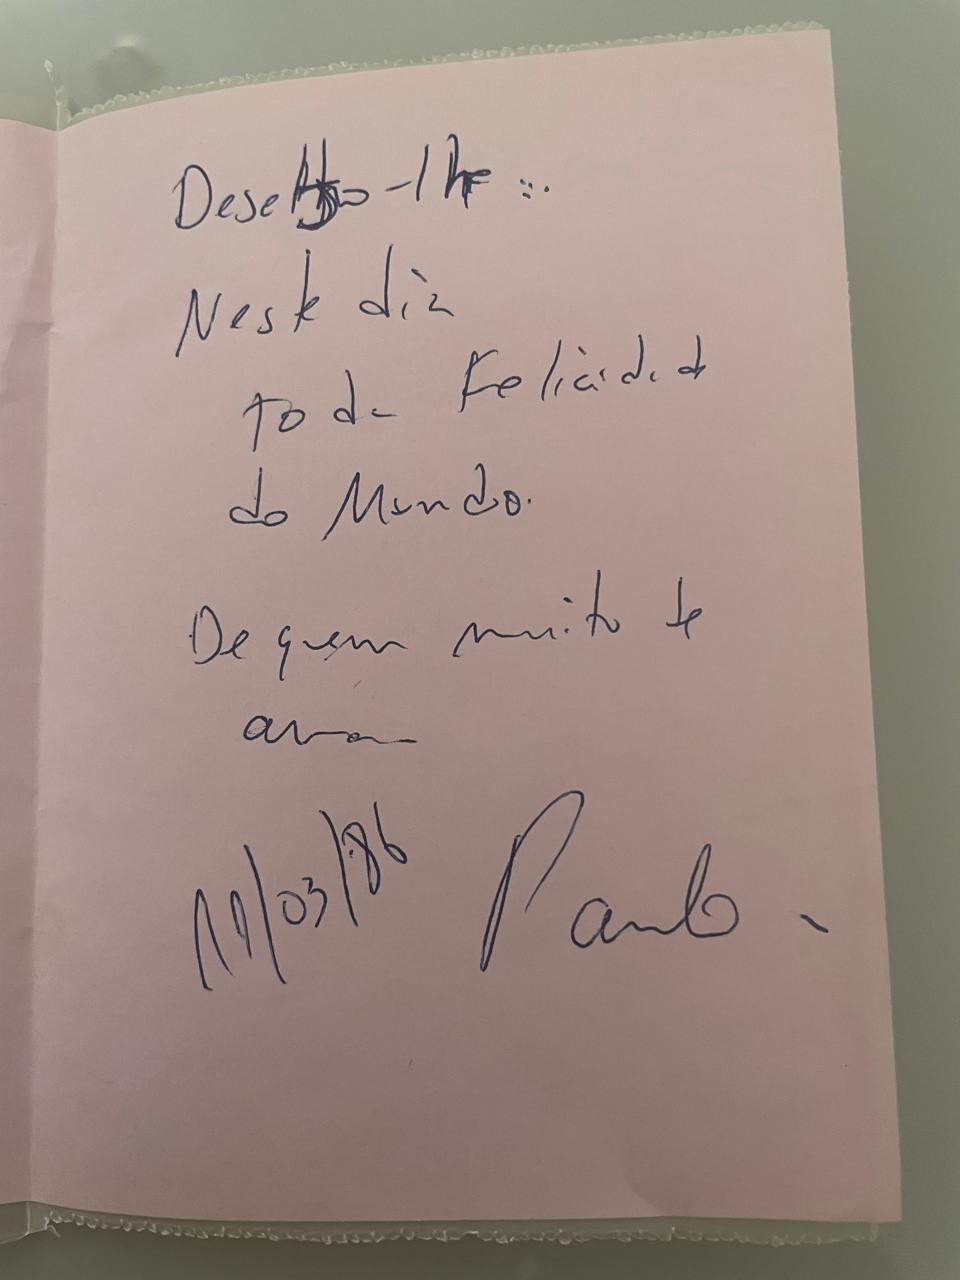 Desejo-lhe ...
Neste dia
toda Felicidade
do Mundo.
De quem muito te
ama
11/03/86 Paulo.